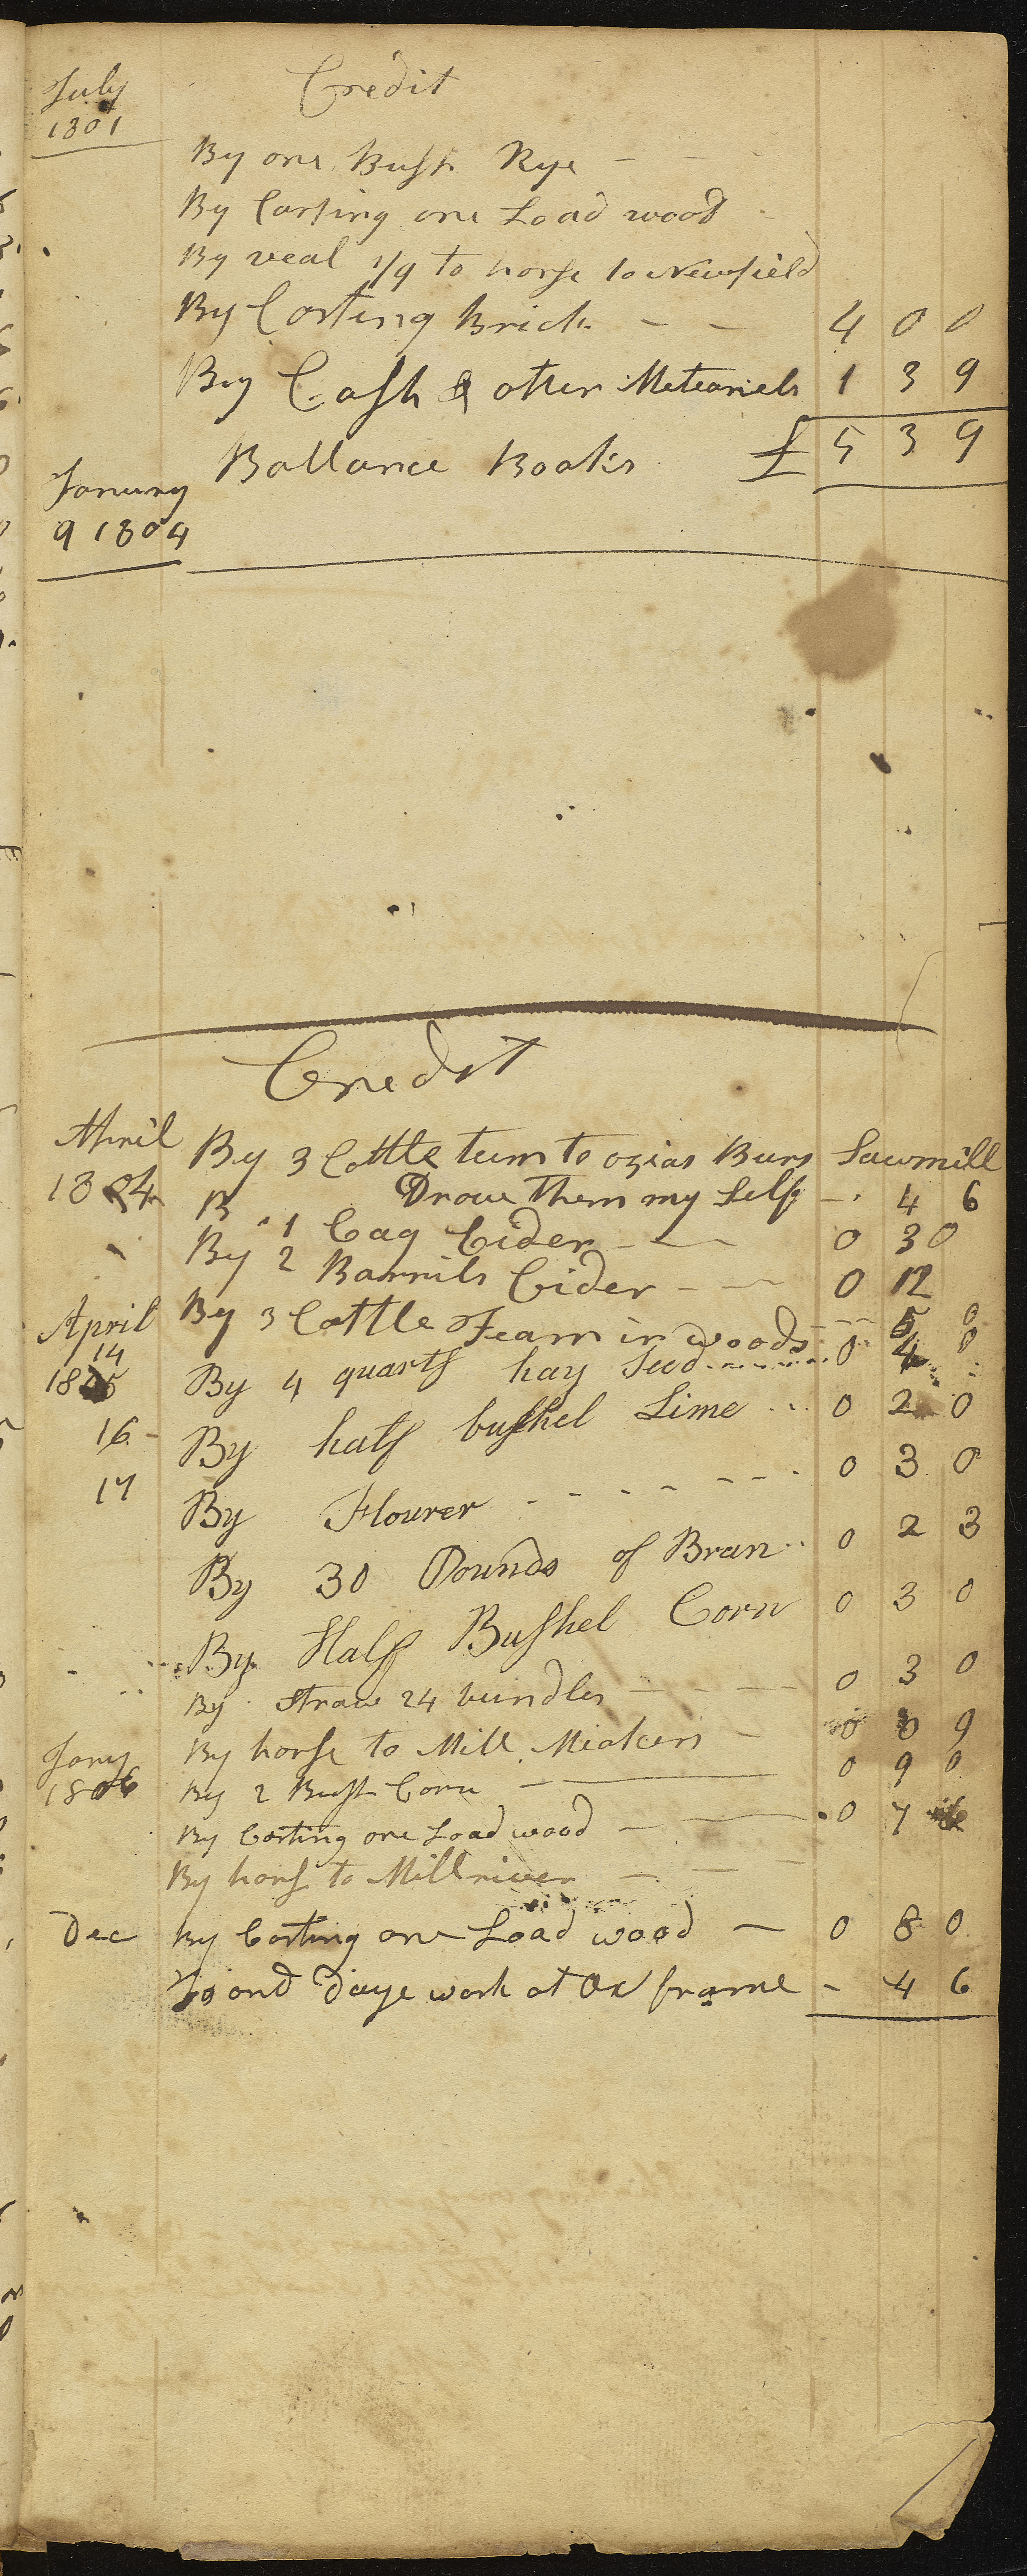 July Credit
1801
By one Bush Rye - -
By Carting one Load wood
By veal 1/9 to horse to Newfield
By Carting Brick - - 4 0 0
By Cash & other Meteariels 1 3 9
Ballance Books £ 5 3 9
January
9 1804
Credit
April By 3 Cattle teem to ozias Burs Sawmill
1804 Drove them my Self - 4 6
B 1 Cag Cider - - 0 3 0
By 2 Barrils Cider - - 0 12
April By 3 Cattle Team in woods --- 5 0
14
1805 By 4 quarts hay Seed 0 4 0
16 - By half bushel Lime 0 2 0
17 By Flourer 0 3 0
By 30 Pounds of Bran 0 2 3
By Half Bushel Corn 0 3 0
By Straw 24 bundles - - - 0 3 0
By horse to Mill Meakers - 0 0 9
Jany
1806 By 2 Bush Corn - 0 9 0
By Carting one Load wood - 0 7
By hors to Millriver - -
Dec By Carting one Load wood - 0 8 0
To one Daye work at Ox frame - 4 6